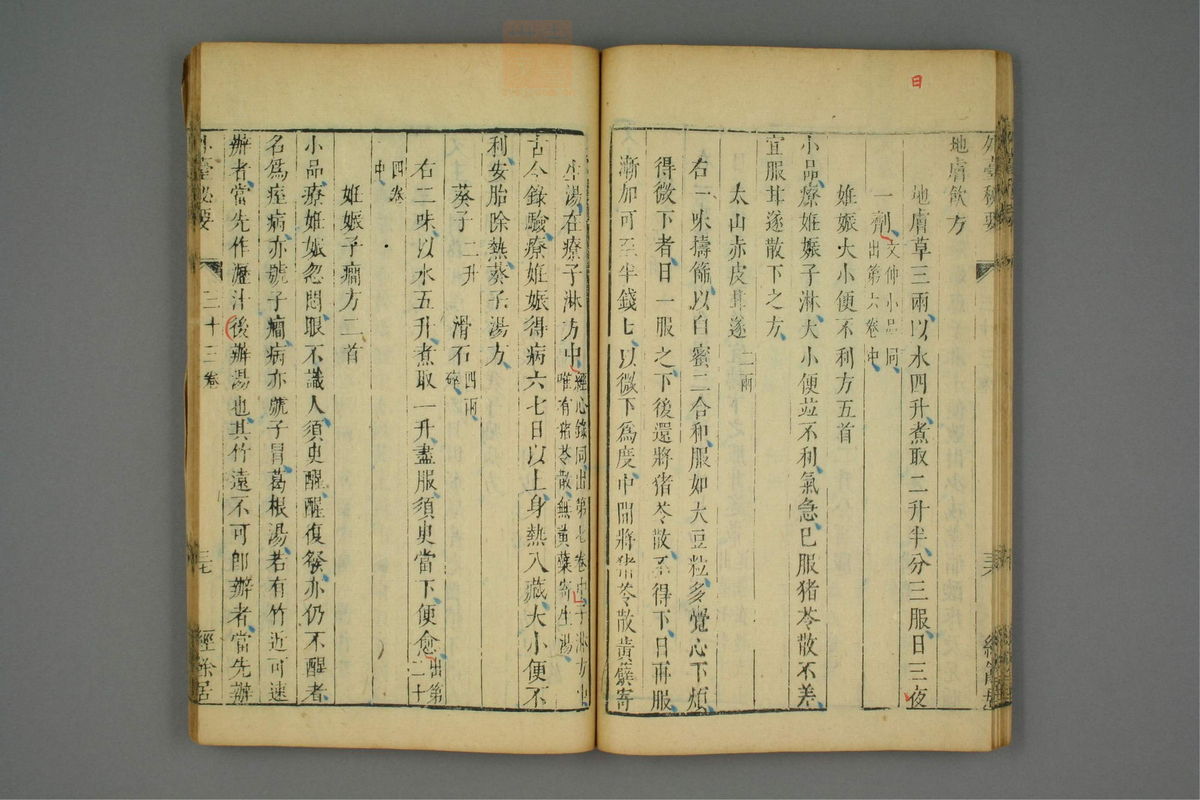 日
外臺秘要
地膚飲方
地膚草三兩以水四升煮取二升半分三服日三夜
一劑文仲小品同出第六卷中
妊娠大小便不利方五首
小品療妊娠子淋大小便並不利氣急已服猪苓散不差
宜服甘遂散下之方
太山赤皮甘遂二兩
右一味擣篩以白蜜二合和服如大豆粒多覺心下煩
得微下者日一服之下後還將猪苓散不得下日再服
漸加可至半錢匕以微下為度中間將猪苓散黃蘗寄
生湯在療子淋方中經心錄同出第七卷中子淋方中唯有猪苓散無黃蘗寄生湯
古今錄驗療妊娠得病六七日以上身熱入藏大小便不
利安胎除熱葵子湯方
葵子二升 滑石四兩碎
右二味以水五升煮取一升盡服須臾當下便愈出第二十
四卷中
妊娠子癇方二首
小品療妊娠忽悶眼不識人須臾醒醒復發亦仍不醒者
名為痓病亦號子癇病亦號子冒葛根湯若有竹近可速
辦者當先作瀝汁後辦湯也其竹遠不可即辦者當先辦
外臺秘要 三十三卷 三七 經餘居